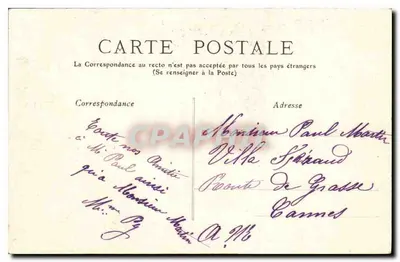 CARTE POSTALE
La Correspondance au recto n'est pas acceptée par tous les pays étrangers
(Se renseigner à la Poste)
Correspondance
Toute nos Amitié
à Mr Paul ainsi
qu'a Monsieur Martin
Mme Py
Adresse
Monsieur Paul Martin
Villa
Route de Grasse
Cannes
A. M